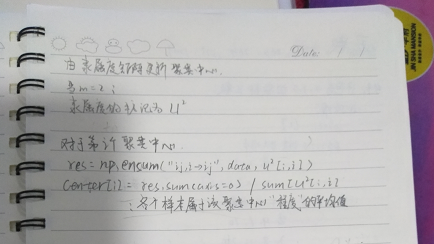 Date: / /
由隶属度矩阵更新聚类中心.
当m=2;
隶属度的权记为 U²
对于第i个聚类中心.
res = np.einsum("ij,i->ij", data, u²[:,i])
center[i] = res.sum(axis=0) / sum(u²[:,i])
: 各个样本属于该聚类中心"程度"的平均值
JIN SHA MANSION